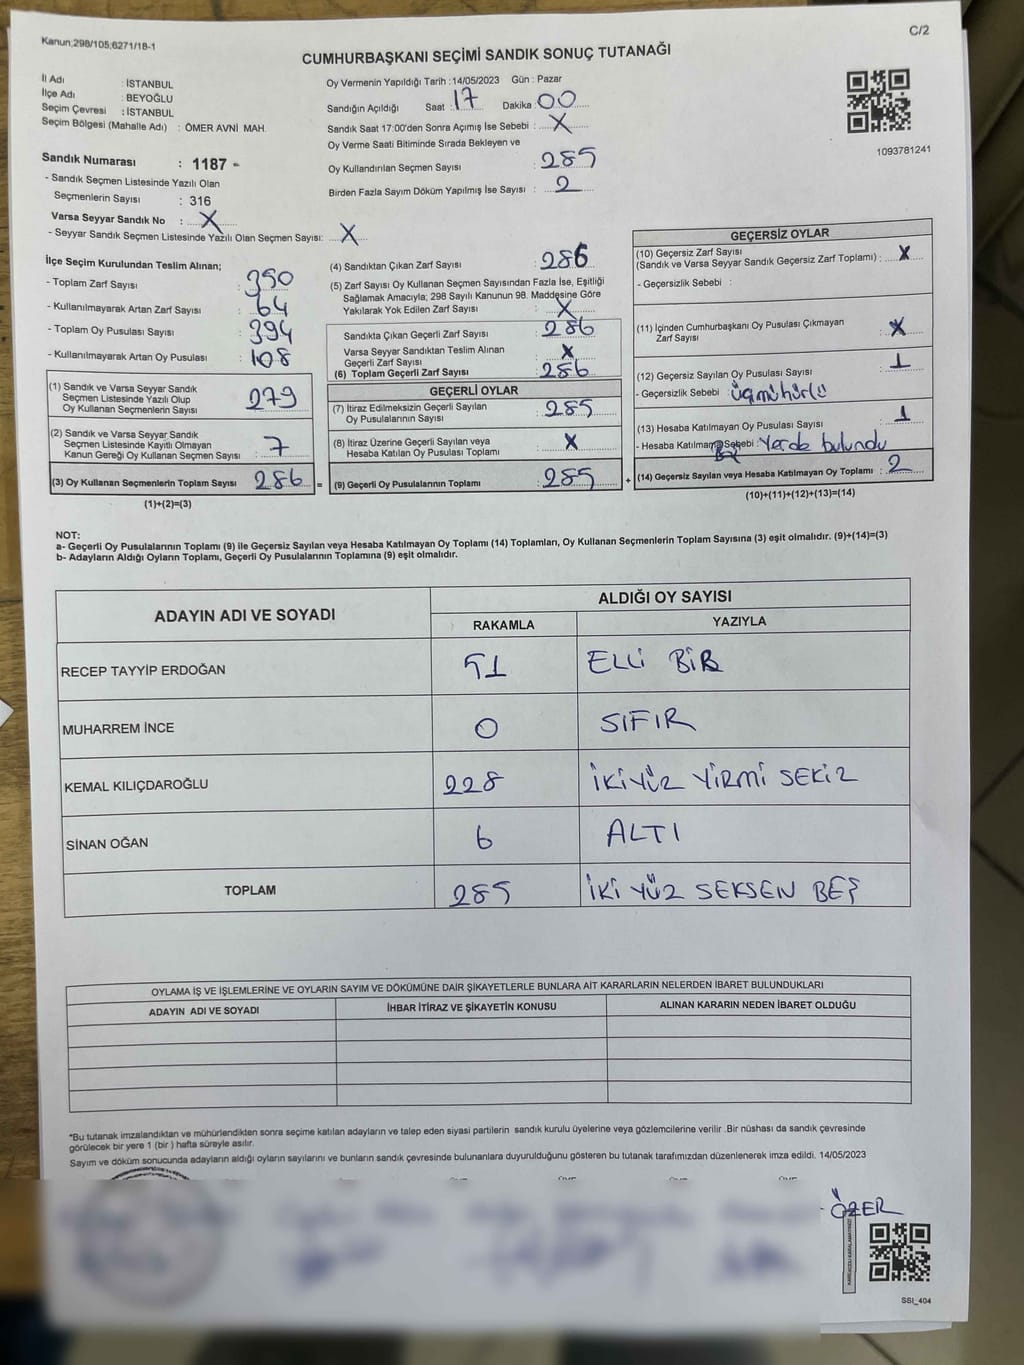 Kanun;298/105;6271/18-1
C/2
CUMHURBAŞKANI SEÇİMİ SANDIK SONUÇ TUTANAĞI
İl Adı : İSTANBUL
İlçe Adı : BEYOĞLU
Seçim Çevresi : İSTANBUL
Seçim Bölgesi (Mahalle Adı) : ÖMER AVNİ MAH.
Sandık Numarası : 1187 -
- Sandık Seçmen Listesinde Yazılı Olan
Seçmenlerin Sayısı : 316
Varsa Seyyar Sandık No : X
- Seyyar Sandık Seçmen Listesinde Yazılı Olan Seçmen Sayısı: X
Oy Vermenin Yapıldığı Tarih :14/05/2023 Gün : Pazar
Sandığın Açıldığı Saat : 17 Dakika : 00
Sandık Saat 17:00'den Sonra Açımış İse Sebebi : X
Oy Verme Saati Bitiminde Sırada Bekleyen ve
Oy Kullandırılan Seçmen Sayısı : 285
Birden Fazla Sayım Döküm Yapılmış İse Sayısı : 2
1093781241
İlçe Seçim Kurulundan Teslim Alınan;
- Toplam Zarf Sayısı : 350
- Kullanılmayarak Artan Zarf Sayısı : 64
- Toplam Oy Pusulası Sayısı : 394
- Kullanılmayarak Artan Oy Pusulası : 108
(1) Sandık ve Varsa Seyyar Sandık
Seçmen Listesinde Yazılı Olup
Oy Kullanan Seçmenlerin Sayısı : 279
(2) Sandık ve Varsa Seyyar Sandık
Seçmen Listesinde Kayıtlı Olmayan
Kanun Gereği Oy Kullanan Seçmen Sayısı : 7
(3) Oy Kullanan Seçmenlerin Toplam Sayısı : 286 =
(1)+(2)=(3)
(4) Sandıktan Çıkan Zarf Sayısı : 286
(5) Zarf Sayısı Oy Kullanan Seçmen Sayısından Fazla İse, Eşitliği
Sağlamak Amacıyla; 298 Sayılı Kanunun 98. Maddesine Göre
Yakılarak Yok Edilen Zarf Sayısı : X
Sandıkta Çıkan Geçerli Zarf Sayısı : 286
Varsa Seyyar Sandıktan Teslim Alınan
Geçerli Zarf Sayısı : X
(6) Toplam Geçerli Zarf Sayısı : 286
GEÇERLİ OYLAR
(7) İtiraz Edilmeksizin Geçerli Sayılan
Oy Pusulalarının Sayısı : 285
(8) İtiraz Üzerine Geçerli Sayılan veya
Hesaba Katılan Oy Pusulası Toplamı : X
(9) Geçerli Oy Pusulalarının Toplamı : 285 +
GEÇERSİZ OYLAR
(10) Geçersiz Zarf Sayısı
(Sandık ve Varsa Seyyar Sandık Geçersiz Zarf Toplamı) : X
- Geçersizlik Sebebi :
(11) İçinden Cumhurbaşkanı Oy Pusulası Çıkmayan
Zarf Sayısı : X
(12) Geçersiz Sayılan Oy Pusulası Sayısı : 1
- Geçersizlik Sebebi : Üçmühürlü
(13) Hesaba Katılmayan Oy Pusulası Sayısı : 1
- Hesaba Katılmama Sebebi : Yerde bulundu
(14) Geçersiz Sayılan veya Hesaba Katılmayan Oy Toplamı : 2
(10)+(11)+(12)+(13)=(14)
NOT:
a- Geçerli Oy Pusulalarının Toplamı (9) ile Geçersiz Sayılan veya Hesaba Katılmayan Oy Toplamı (14) Toplamları, Oy Kullanan Seçmenlerin Toplam Sayısına (3) eşit olmalıdır. (9)+(14)=(3)
b- Adayların Aldığı Oyların Toplamı, Geçerli Oy Pusulalarının Toplamına (9) eşit olmalıdır.
ADAYIN ADI VE SOYADI
ALDIĞI OY SAYISI
RAKAMLA YAZIYLA
RECEP TAYYİP ERDOĞAN 51 ELLİ BİR
MUHARREM İNCE 0 SIFIR
KEMAL KILIÇDAROĞLU 228 İKİYÜZ YİRMİ SEKİZ
SİNAN OĞAN 6 ALTI
TOPLAM 285 İKİ YÜZ SEKSEN BEŞ
OYLAMA İŞ VE İŞLEMLERİNE VE OYLARIN SAYIM VE DÖKÜMÜNE DAİR ŞİKAYETLERLE BUNLARA AİT KARARLARIN NELERDEN İBARET BULUNDUKLARI
ADAYIN ADI VE SOYADI İHBAR İTİRAZ VE ŞİKAYETİN KONUSU ALINAN KARARIN NEDEN İBARET OLDUĞU
*Bu tutanak imzalandıktan ve mühürlendikten sonra seçime katılan adayların ve talep eden siyasi partilerin sandık kurulu üyelerine veya gözlemcilerine verilir .Bir nüshası da sandık çevresinde
görülecek bir yere 1 (bir ) hafta süreyle asılır.
Sayım ve döküm sonucunda adayların aldığı oyların sayılarını ve bunların sandık çevresinde bulunanlara duyurulduğunu gösteren bu tutanak tarafımızdan düzenlenerek imza edildi. 14/05/2023
ÖZER
KAREKODU KARALAMAYINIZ!
SSI_404